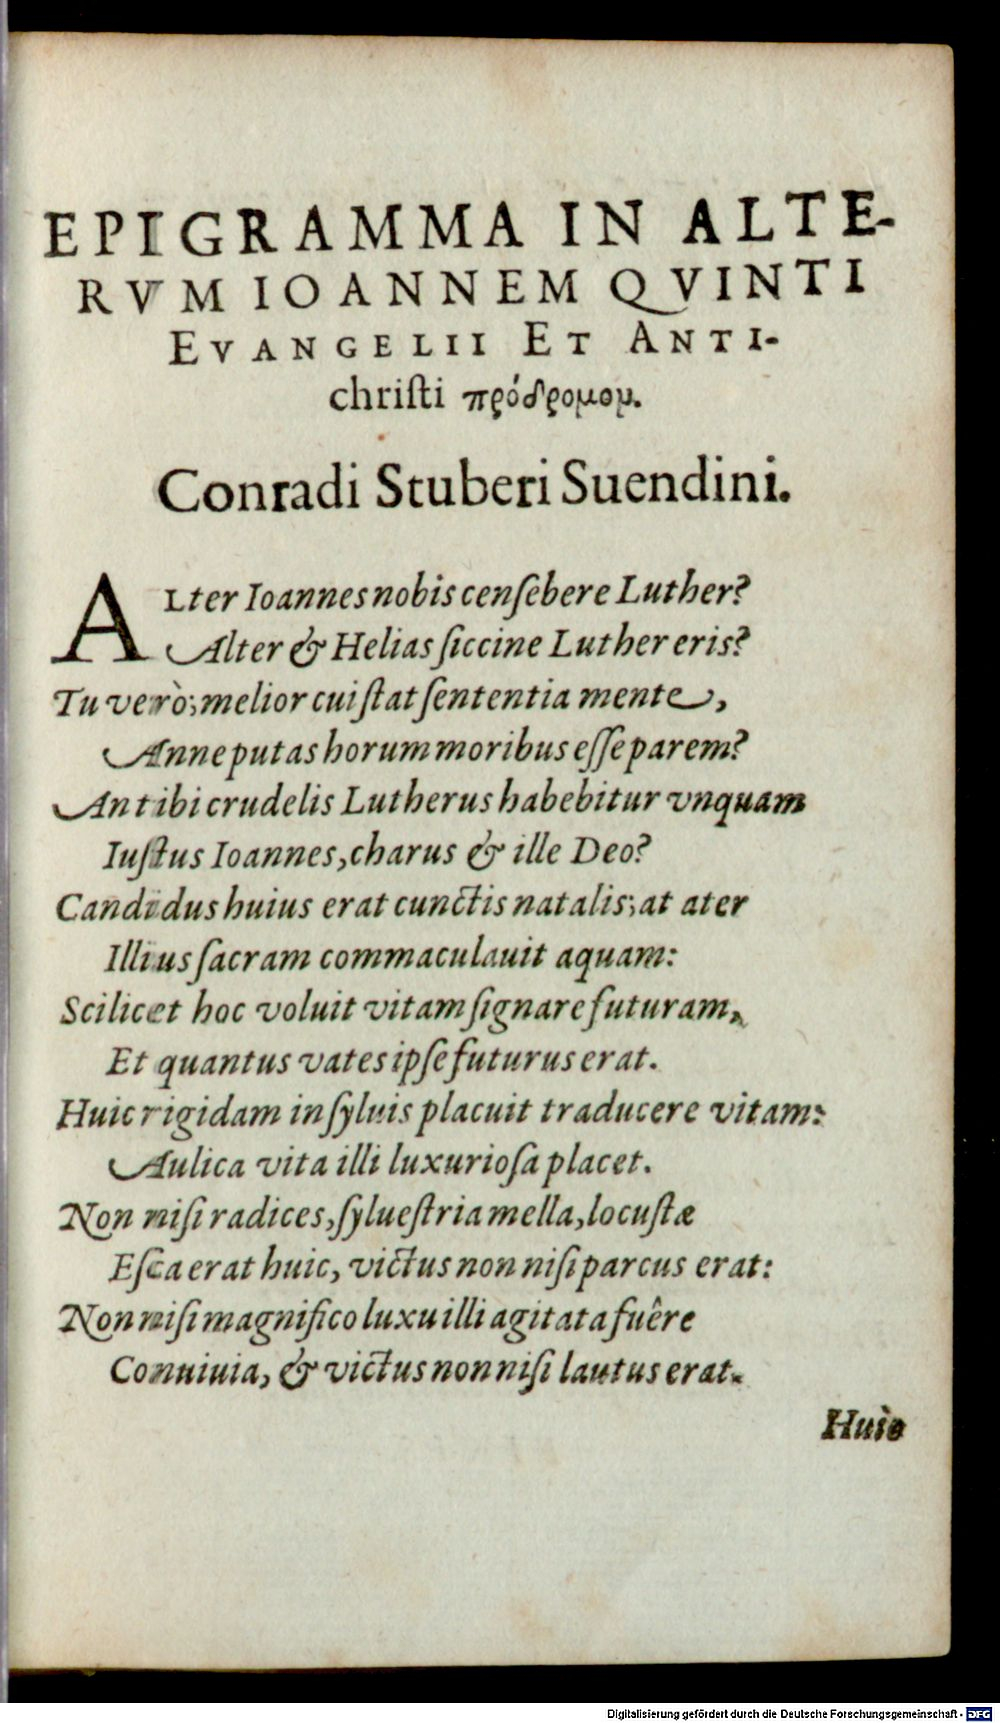 EPIGRAMMA IN ALTE-
RVM IOANNEM QVINTI
EVANGELII ET ANTI-
christi πρόδρομομ.
Conradi Stuberi Suendini.
ALter Ioannes nobis censebere Luther?
Alter & Helias siccine Luther eris?
Tu verò; melior cui stat sententia mente,
Anne putas horum moribus esse parem?
An tibi crudelis Lutherus habebitur vnquam
Iustus Ioannes, charus & ille Deo?
Candidus huius erat cunctis natalis; at ater
Illius sacram commaculauit aquam:
Scilicet hoc voluit vitam signare futuram,
Et quantus vates ipse futurus erat.
Huic rigidam in syluis placuit traducere vitam:
Aulica vita illi luxuriosa placet.
Non nisi radices, syluestria mella, locustæ
Esca erat huic, victus non nisi parcus erat:
Non nisi magnifico luxu illi agitata fuêre
Conuiuia, & victus non nisi lautus erat.
Huic
Digitalisierung gefördert durch die Deutsche Forschungsgemeinschaft - DFG